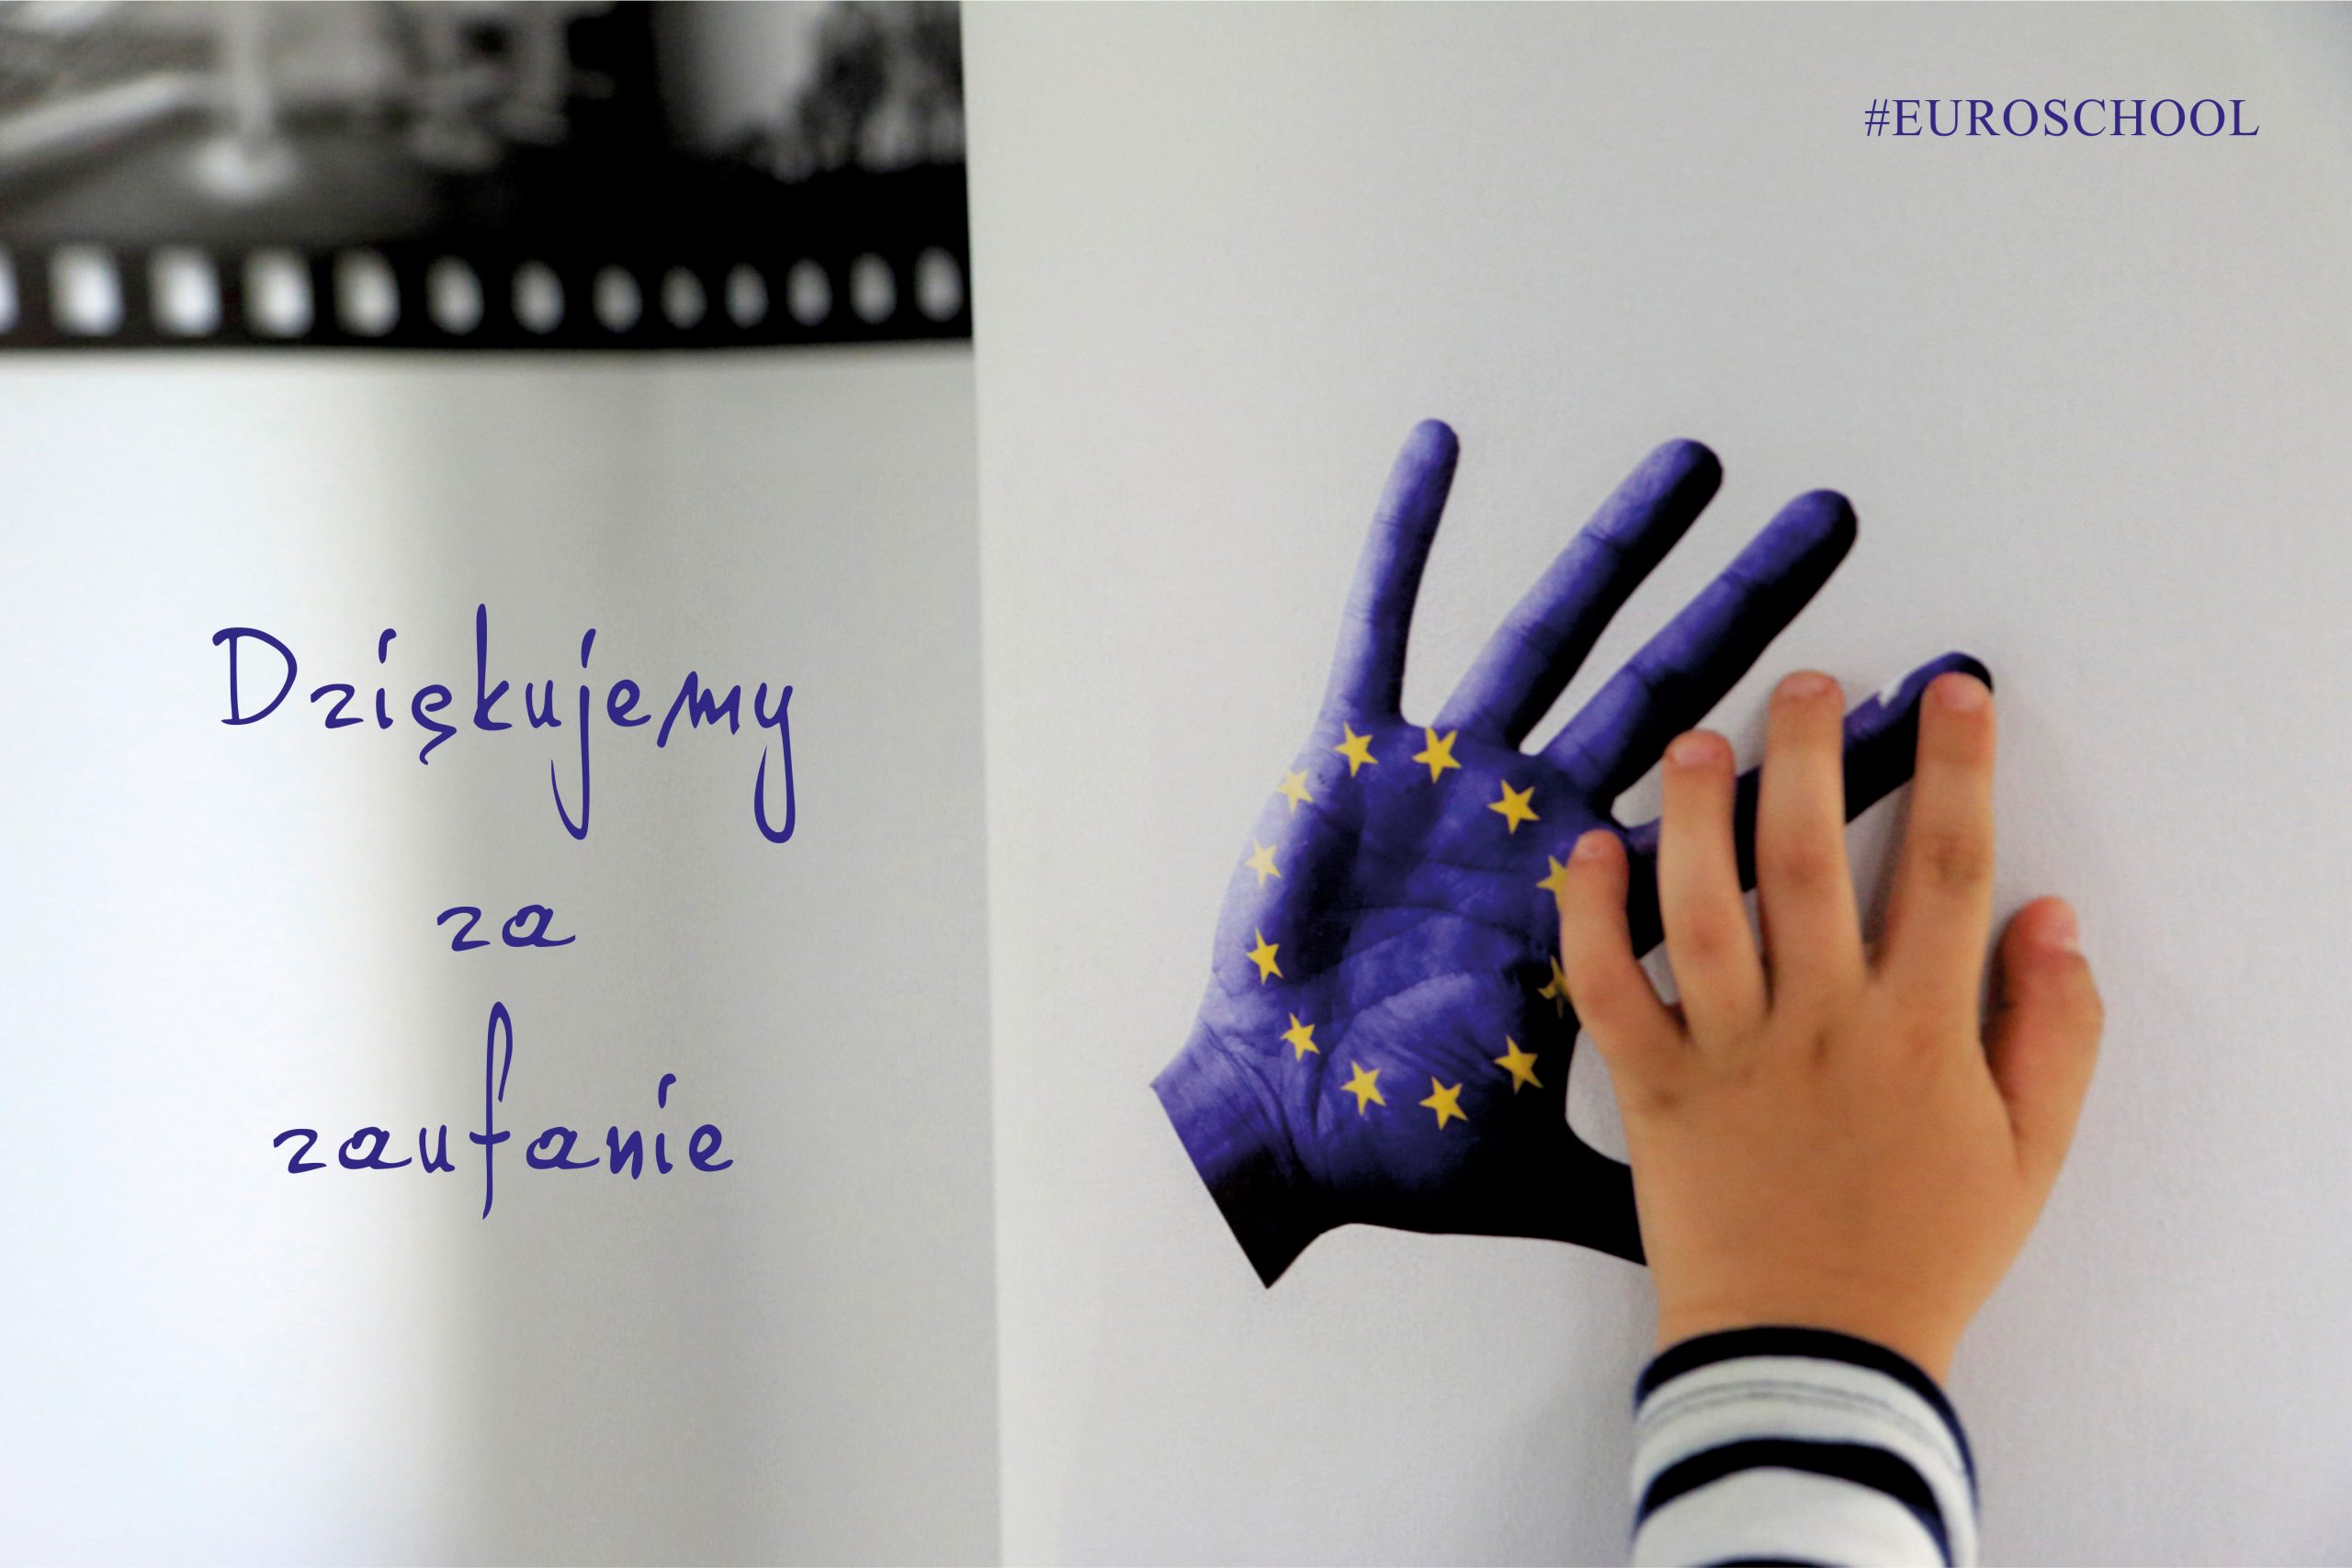 #EUROSCHOOL
Dziękujemy
za
zaufanie